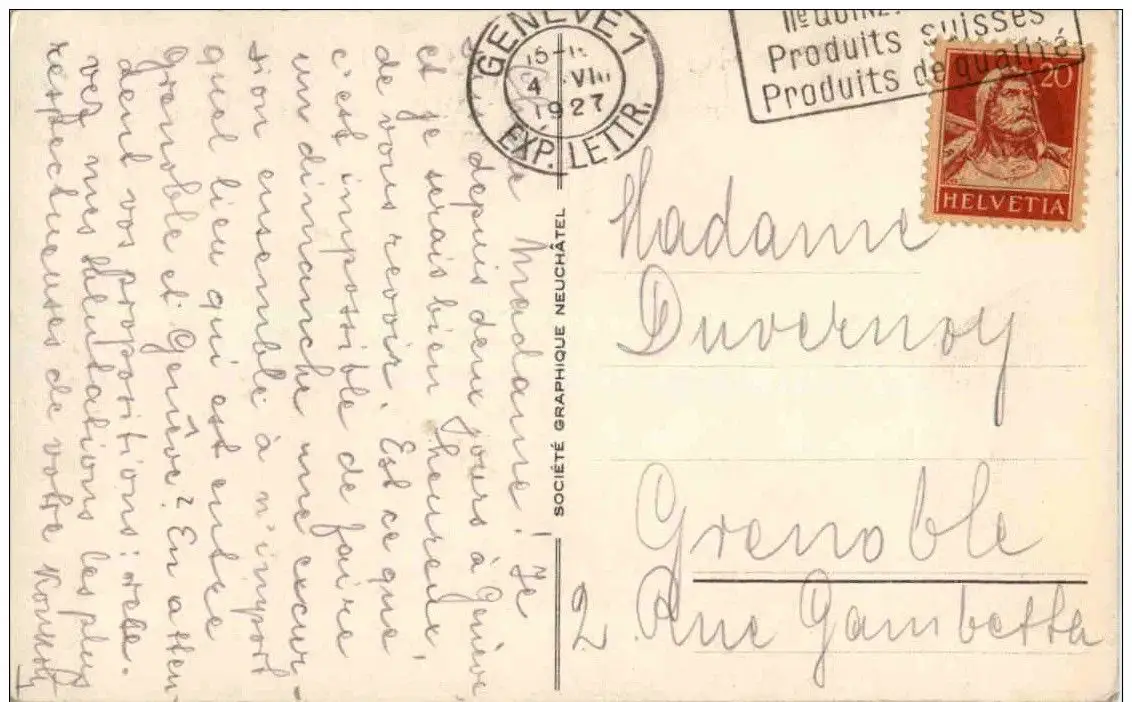 GENÈVE 1
15-
4 VIII
1927
EXP. LETTR.
Produits suisses
Produits de qualité
20
HELVETIA
Madame
Duvernoy
Grenoble
2 Rue Gambetta
SOCIÉTÉ GRAPHIQUE NEUCHÂTEL
Madame! Je
suis depuis deux jours à Genève
et je serais bien heureux,
de vous revoir. Est ce que
c'est impossible de faire
un dimanche une excur-
sion ensemble à n'import
quel lieu qui est entre
Grenoble et Genève? En atten-
dent vos propositions:
vez mes salutations les plus
respectueuses de votre